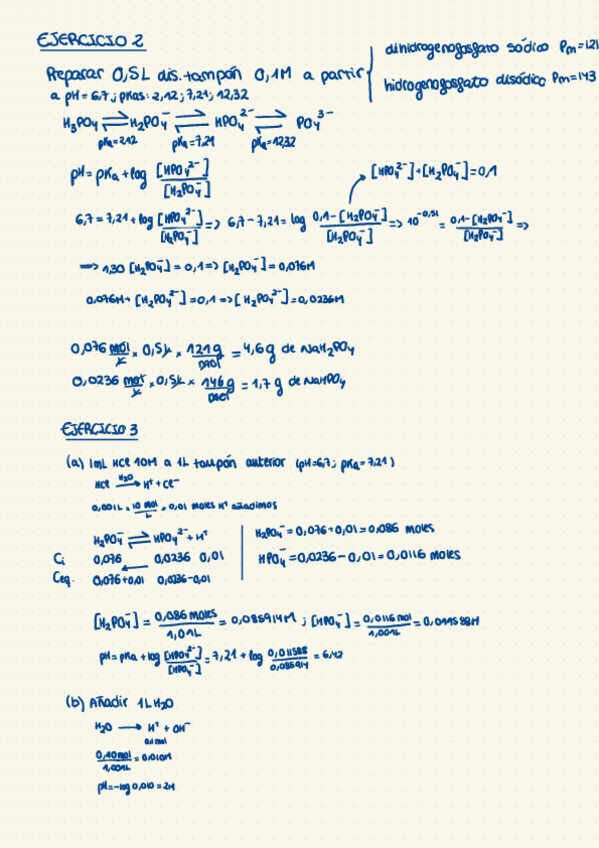 EJERCICIO 2
Preparar 0,5L dis. tampón 0,1M a partir
dihidrogenofosfato sódico Pm=121
hidrogenofosfato disódico Pm=143
a pH=6,7; pKas: 2,12; 7,21; 12,32
H₃PO₄ ⇌ H₂PO₄⁻ ⇌ HPO₄²⁻ ⇌ PO₄³⁻
pKa=2,12 pKa=7,21 pKa=12,32
pH = pKa + log [HPO₄²⁻]/[H₂PO₄⁻]
[HPO₄²⁻]+[H₂PO₄⁻]=0,1
6,7=7,21+log [HPO₄²⁻]/[H₂PO₄⁻] => 6,7-7,21=log 0,1-[H₂PO₄⁻]/[H₂PO₄⁻] => 10^-0,51 = 0,1-[H₂PO₄⁻]/[H₂PO₄⁻] =>
=> 1,30 [H₂PO₄⁻] = 0,1 => [H₂PO₄⁻] = 0,076M
0,076M+[H₂PO₄²⁻]=0,1 => [H₂PO₄²⁻]=0,0236M
0,076 mol/L × 0,5L × 121g/mol = 4,6g de NaH₂PO₄
0,0236 mol/L × 0,5L × 146g/mol = 1,7g de NaHPO₄
EJERCICIO 3
(a) 1mL HCl 10M a 1L tampón anterior (pH=6,7; pKa=7,21)
HCl →H₂O H⁺ + Cl⁻
0,001L × 10 mol/L = 0,01 moles H⁺ añadimos
H₂PO₄⁻ ⇌ HPO₄²⁻ + H⁺
Ci 0,076 0,0236 0,01
Ceq. 0,076+0,01 0,0236-0,01
H₂PO₄⁻ = 0,076+0,01 = 0,086 moles
HPO₄⁻ = 0,0236-0,01 = 0,0116 moles
[H₂PO₄⁻] = 0,086 moles/1,01L = 0,085914M ; [HPO₄⁻] = 0,0116 mol/1,001L = 0,011588M
pH = pKa + log [HPO₄²⁻]/[HPO₄⁻] = 7,21 + log 0,011588/0,085914 = 6,42
(b) Añadir 1L H₂O
H₂O → H⁺ + OH⁻
0,1 mol
0,10mol/1,001L = 0,010M
pH=-log 0,010 = 2M